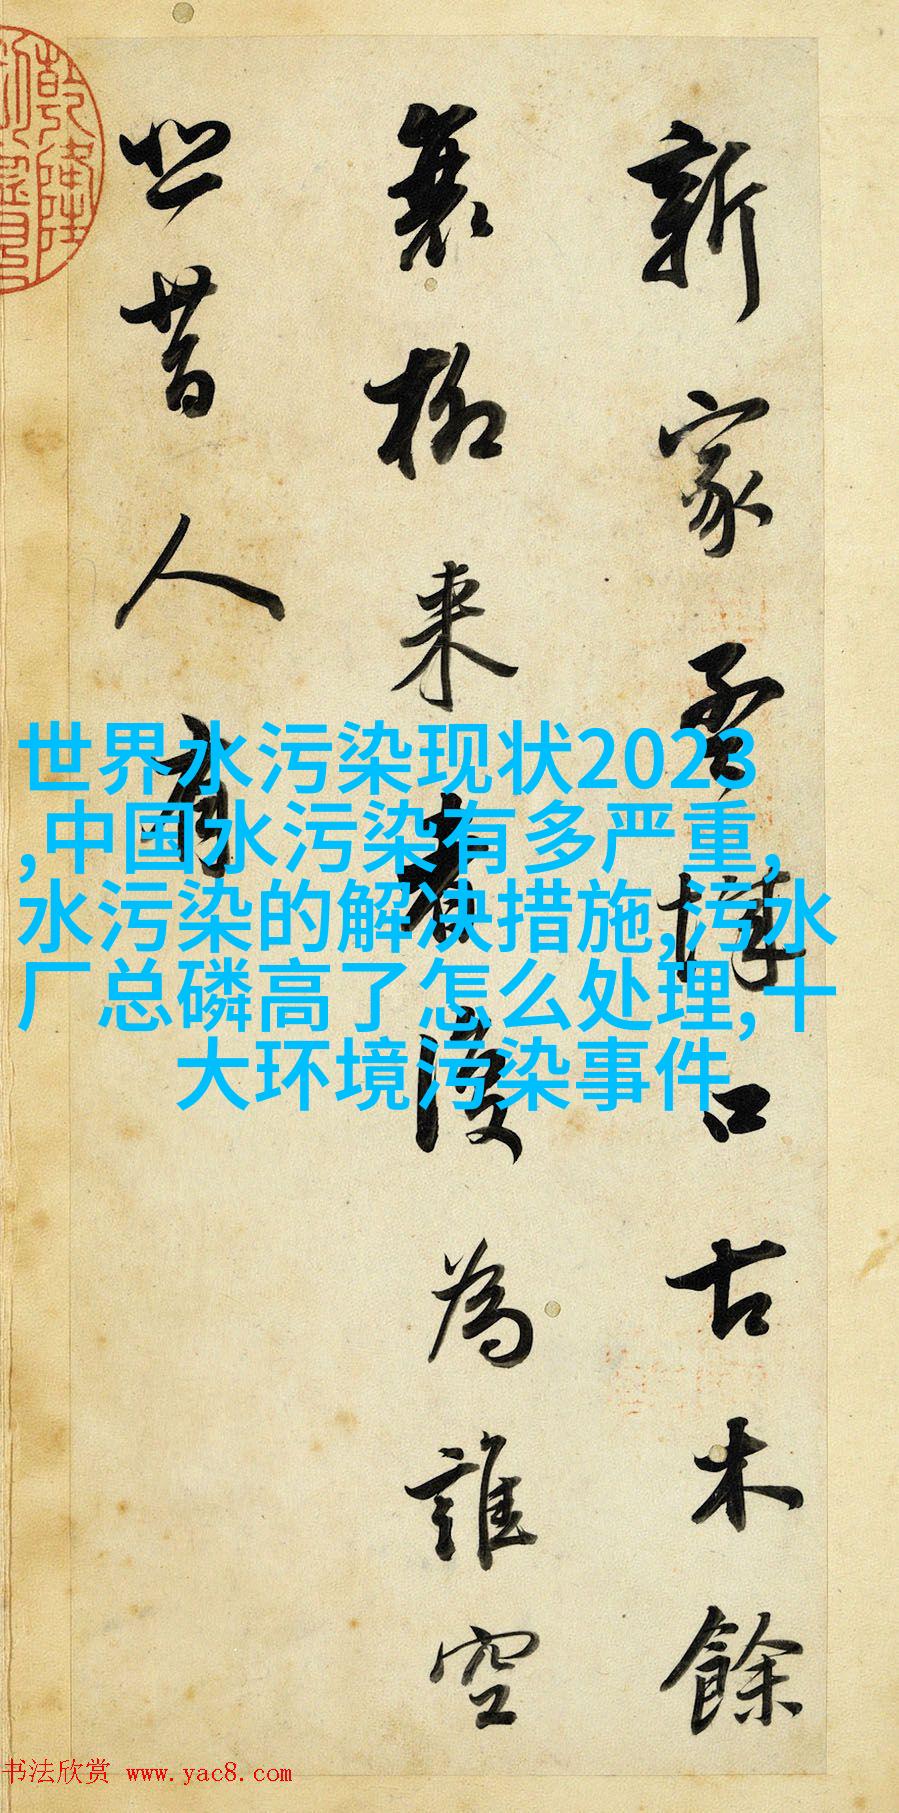 新家孟城口古木餘
衰柳來者復為誰空
悲昔人有
乾隆
世界水污染现状2023
,中国水污染有多严重,
水污染的解决措施,污水
厂总磷高了怎么处理,十
大环境污染事件
书法欣赏 www.yac8.com